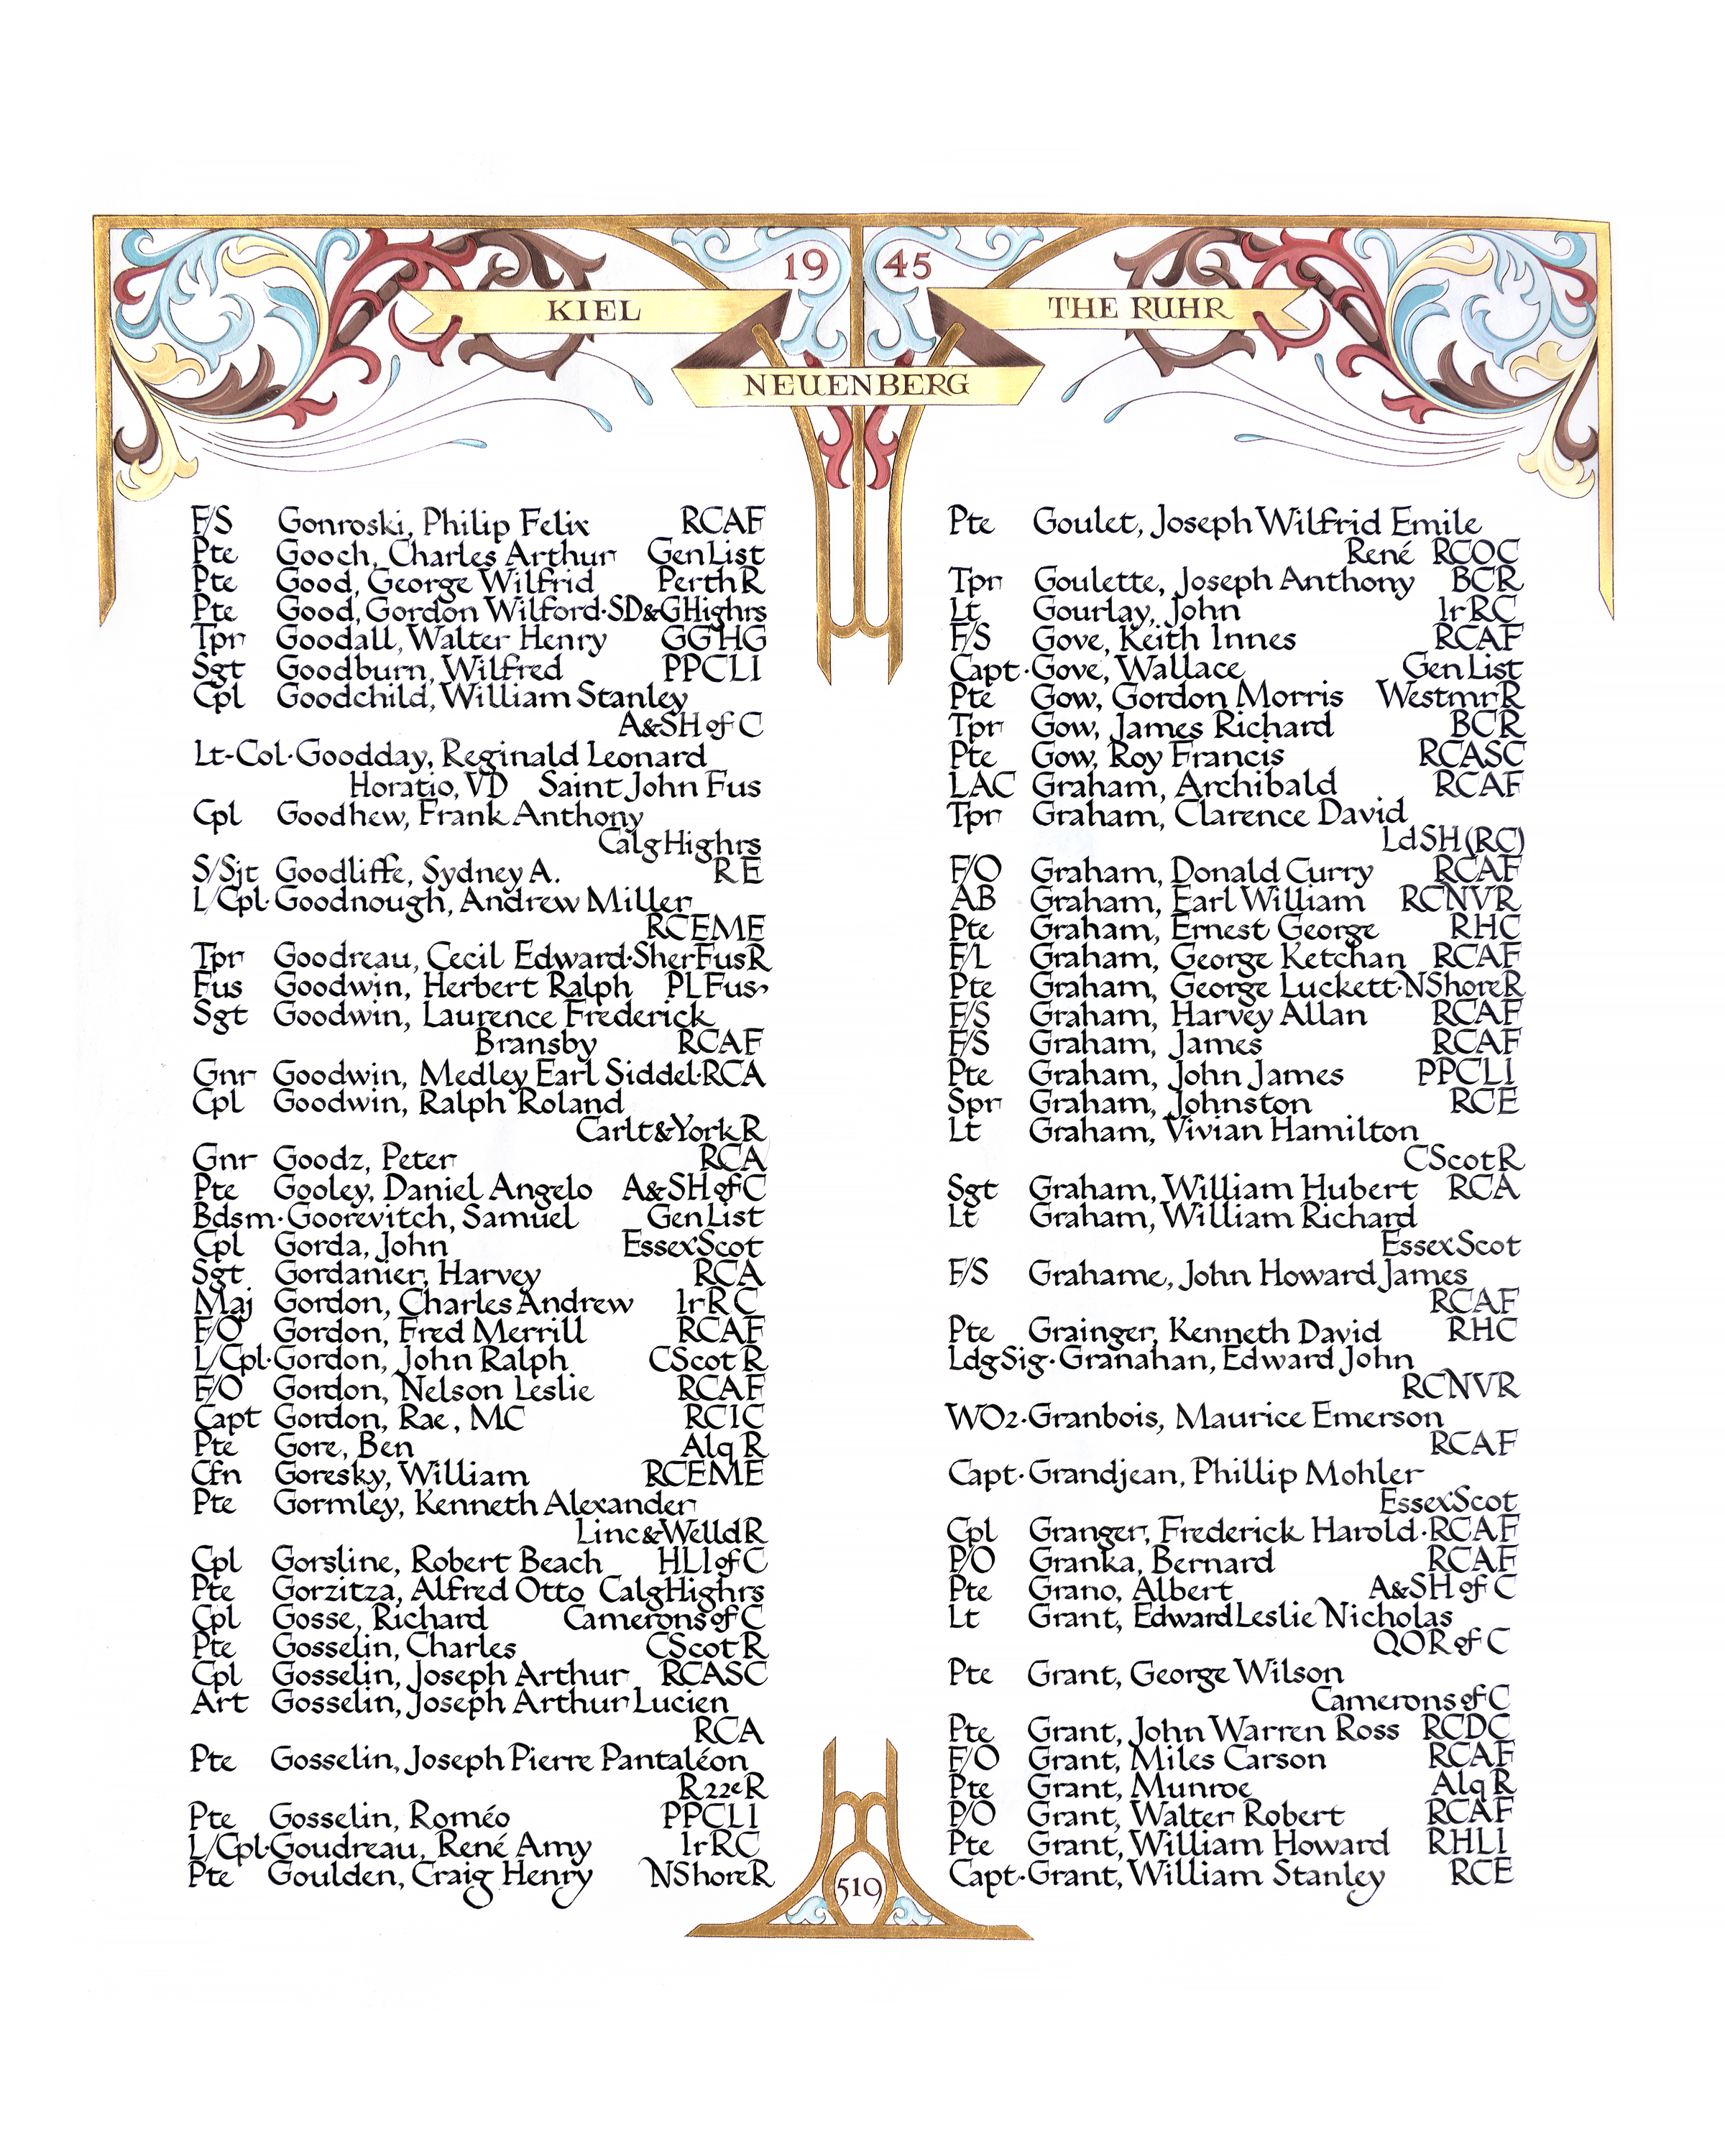 19 45
KIEL
THE RUHR
NEUENBERG
F/S Gonroski, Philip Felix RCAF
Pte Gooch, Charles Arthur GenList
Pte Good, George Wilfrid PerthR
Pte Good, Gordon Wilford·SD&GHighrs
Tpr Goodall, Walter Henry GGHG
Sgt Goodburn, Wilfred PPCLI
Cpl Goodchild, William Stanley
A&SH of C
Lt-Col·Goodday, Reginald Leonard
Horatio, VD Saint John Fus
Cpl Goodhew, Frank Anthony
CalgHighrs
S/Sjt Goodliffe, Sydney A. RE
L/Cpl·Goodnough, Andrew Miller
RCEME
Tpr Goodreau, Cecil Edward·SherFusR
Fus Goodwin, Herbert Ralph PLFus
Sgt Goodwin, Laurence Frederick
Bransby RCAF
Gnr Goodwin, Medley Earl Siddel·RCA
Cpl Goodwin, Ralph Roland
Carlt&YorkR
Gnr Goodz, Peter RCA
Pte Gooley, Daniel Angelo A&SH of C
Bdsm·Goorevitch, Samuel GenList
Cpl Gorda, John EssexScot
Sgt Gordanier, Harvey RCA
Maj Gordon, Charles Andrew IrRC
F/O Gordon, Fred Merrill RCAF
L/Cpl·Gordon, John Ralph CScotR
F/O Gordon, Nelson Leslie RCAF
Capt Gordon, Rae, MC RCIC
Pte Gore, Ben AlqR
Cfn Goresky, William RCEME
Pte Gormley, Kenneth Alexander
Linc&WelldR
Cpl Gorsline, Robert Beach HLI of C
Pte Gorzitza, Alfred Otto CalgHighrs
Cpl Gosse, Richard Camerons of C
Pte Gosselin, Charles CScotR
Cpl Gosselin, Joseph Arthur RCASC
Art Gosselin, Joseph Arthur Lucien
RCA
Pte Gosselin, Joseph Pierre Pantaléon
R22eR
Pte Gosselin, Roméo PPCLI
L/Cpl·Goudreau, René Amy IrRC
Pte Goulden, Craig Henry NShoreR
Pte Goulet, Joseph Wilfrid Emile
René RCOC
Tpr Goulette, Joseph Anthony BCR
Lt Gourlay, John IrRC
F/S Gove, Keith Innes RCAF
Capt·Gove, Wallace GenList
Pte Gow, Gordon Morris WestmrR
Tpr Gow, James Richard BCR
Pte Gow, Roy Francis RCASC
LAC Graham, Archibald RCAF
Tpr Graham, Clarence David
LdSH(RC)
F/O Graham, Donald Curry RCAF
AB Graham, Earl William RCNVR
Pte Graham, Ernest George RHC
F/L Graham, George Ketchan RCAF
Pte Graham, George Luckett·NShoreR
F/S Graham, Harvey Allan RCAF
F/S Graham, James RCAF
Pte Graham, John James PPCLI
Spr Graham, Johnston RCE
Lt Graham, Vivian Hamilton
CScotR
Sgt Graham, William Hubert RCA
Lt Graham, William Richard
EssexScot
F/S Grahame, John Howard James
RCAF
Pte Grainger, Kenneth David RHC
LdgSig·Granahan, Edward John
RCNVR
WO2·Granbois, Maurice Emerson
RCAF
Capt·Grandjean, Phillip Mohler
EssexScot
Cpl Granger, Frederick Harold·RCAF
P/O Granka, Bernard RCAF
Pte Grano, Albert A&SH of C
Lt Grant, Edward Leslie Nicholas
QOR of C
Pte Grant, George Wilson
Camerons of C
Pte Grant, John Warren Ross RCDC
F/O Grant, Miles Carson RCAF
Pte Grant, Munroe AlqR
P/O Grant, Walter Robert RCAF
Pte Grant, William Howard RHLI
Capt·Grant, William Stanley RCE
519